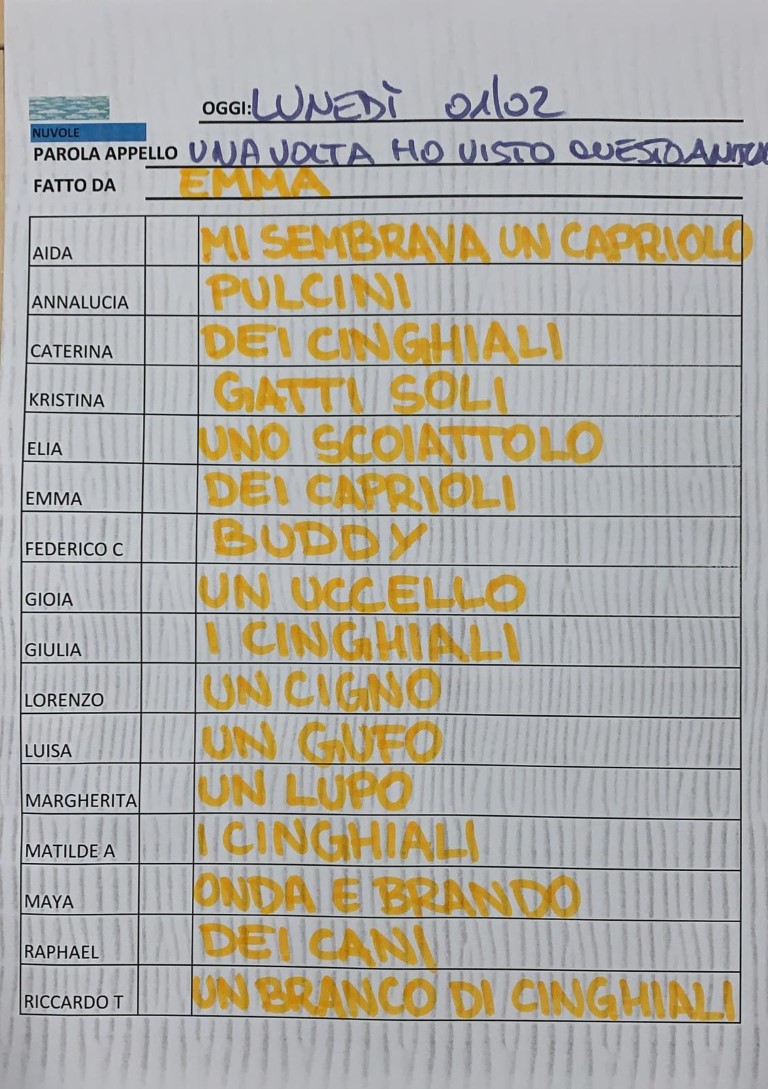 OGGI: LUNEDÌ 01/02
NUVOLE
PAROLA APPELLO UNA VOLTA HO VISTO QUESTO
FATTO DA EMMA
AIDA MI SEMBRAVA UN CAPRIOLO
ANNALUCIA PULCINI
CATERINA DEI CINGHIALI
KRISTINA GATTI SOLI
ELIA UNO SCOIATTOLO
EMMA DEI CAPRIOLI
FEDERICO C BUDDY
GIOIA UN UCCELLO
GIULIA I CINGHIALI
LORENZO UN CIGNO
LUISA UN GUFO
MARGHERITA UN LUPO
MATILDE A I CINGHIALI
MAYA ONDA E BRANDO
RAPHAEL DEI CANI
RICCARDO T UN BRANCO DI CINGHIALI